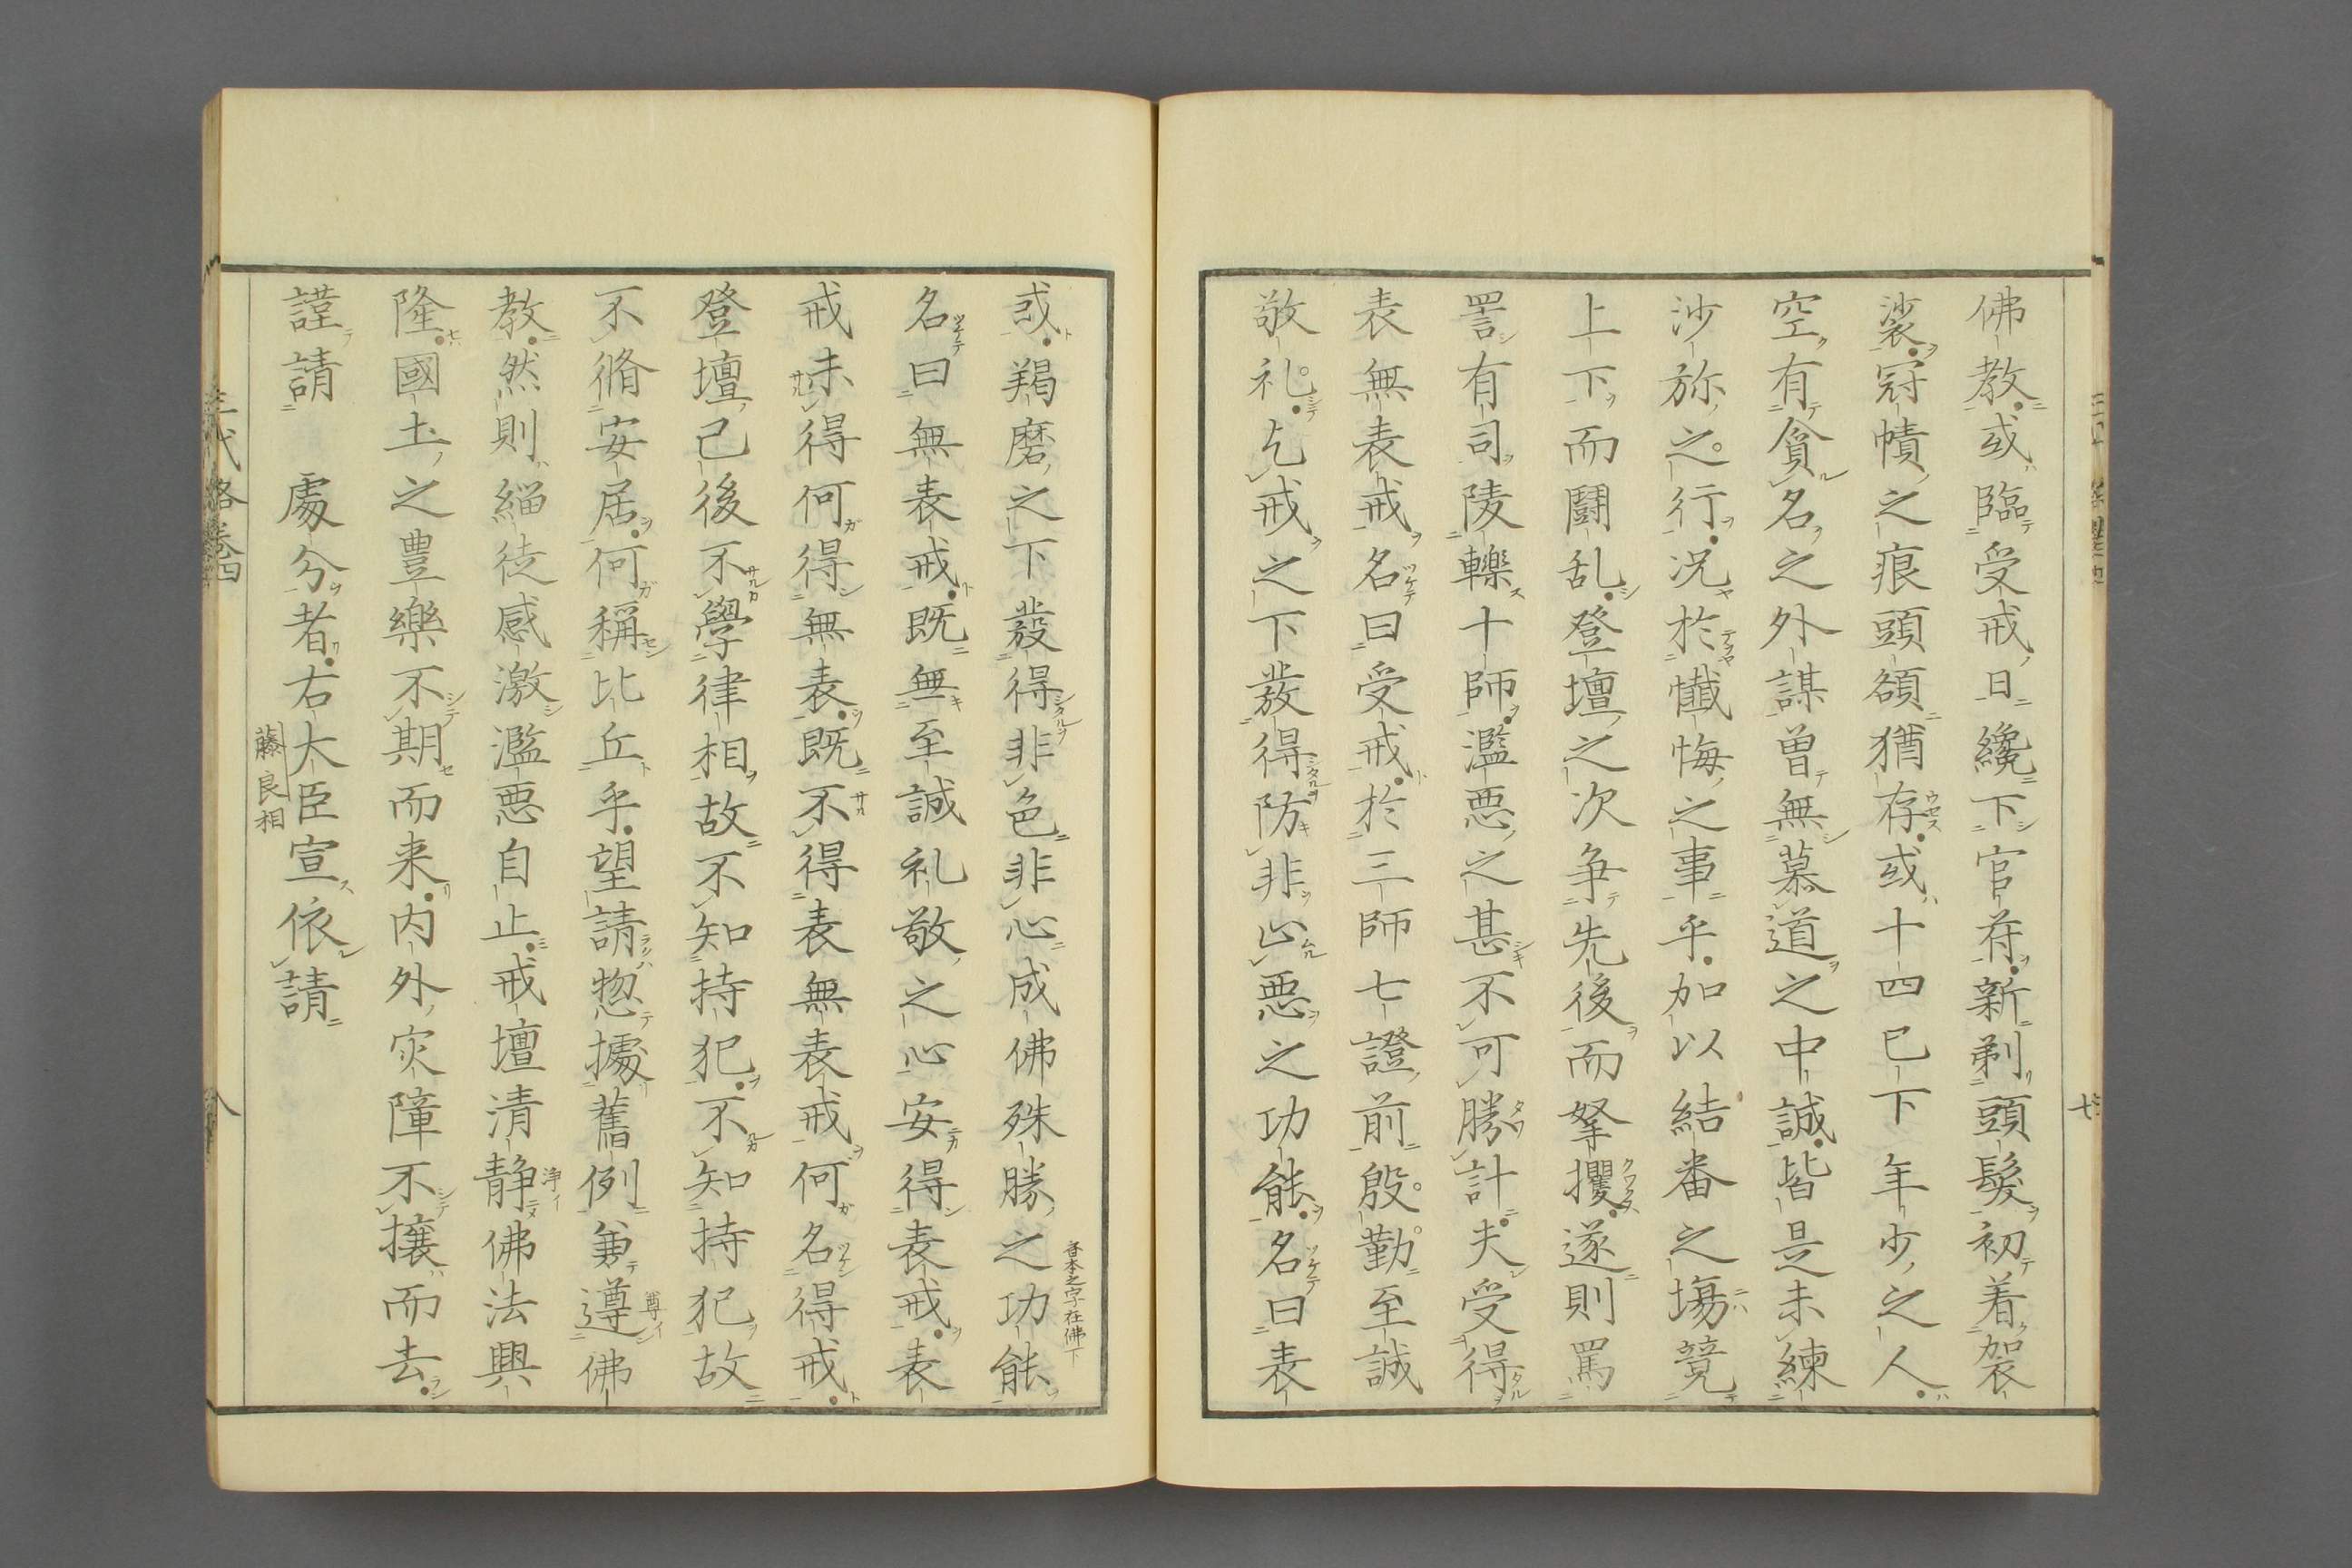 佛教或臨受戒日纔下官符新剃頭髮初着袈
裟冠幘之痕頭額猶存或十四已下年少之人
空有貪名之外謀曾無慕道之中誠皆是未練
沙弥之行况於懺悔之事乎加以結番之場競
上下而鬪乱登壇之次争先後而拏攫遂則罵
詈有司陵轢十師濫悪之甚不可勝計夫受得
表無表戒名曰受戒於三師七證前殷勤至誠
敬礼乞戒之下發得防非止悪之功能名曰表
戒羯磨之下發得非色非心成佛殊勝之功能
香本之字在佛下
名曰無表戒既無至誠礼敬之心安得表戒表
戒未得何得無表既不得表無表戒何名得戒
登壇已後不學律相故不知持犯不知持犯故
不脩安居何稱比丘乎望請惣據舊例兼遵佛
尊イ
教然則緇徒感激濫悪自止戒壇清静佛法興
浄イ
隆國土之豊樂不期而来内外灾障不攘而去
謹請 處分者右大臣宣依請
藤良相
三代格卷四
八
七